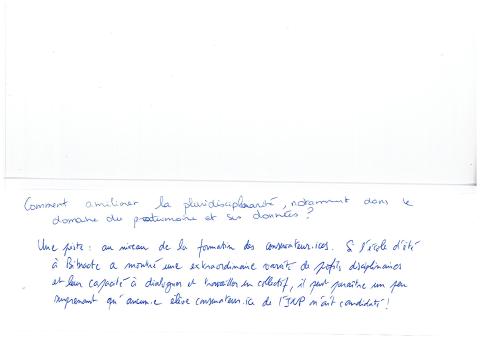 Comment améliorer la pluridisciplinarité, notamment dans le
domaine du patrimoine et ses données ?
Une piste : au niveau de la formation des conservateur.ices. Si l'école d'été
à Bibracte a montré une extraordinaire variété de profils disciplinaires
et leur capacité à dialoguer et travailler en collectif, il peut paraître un peu
surprenant qu'aucun.e élève conservateur.ice de l'INP n'ait candidaté !